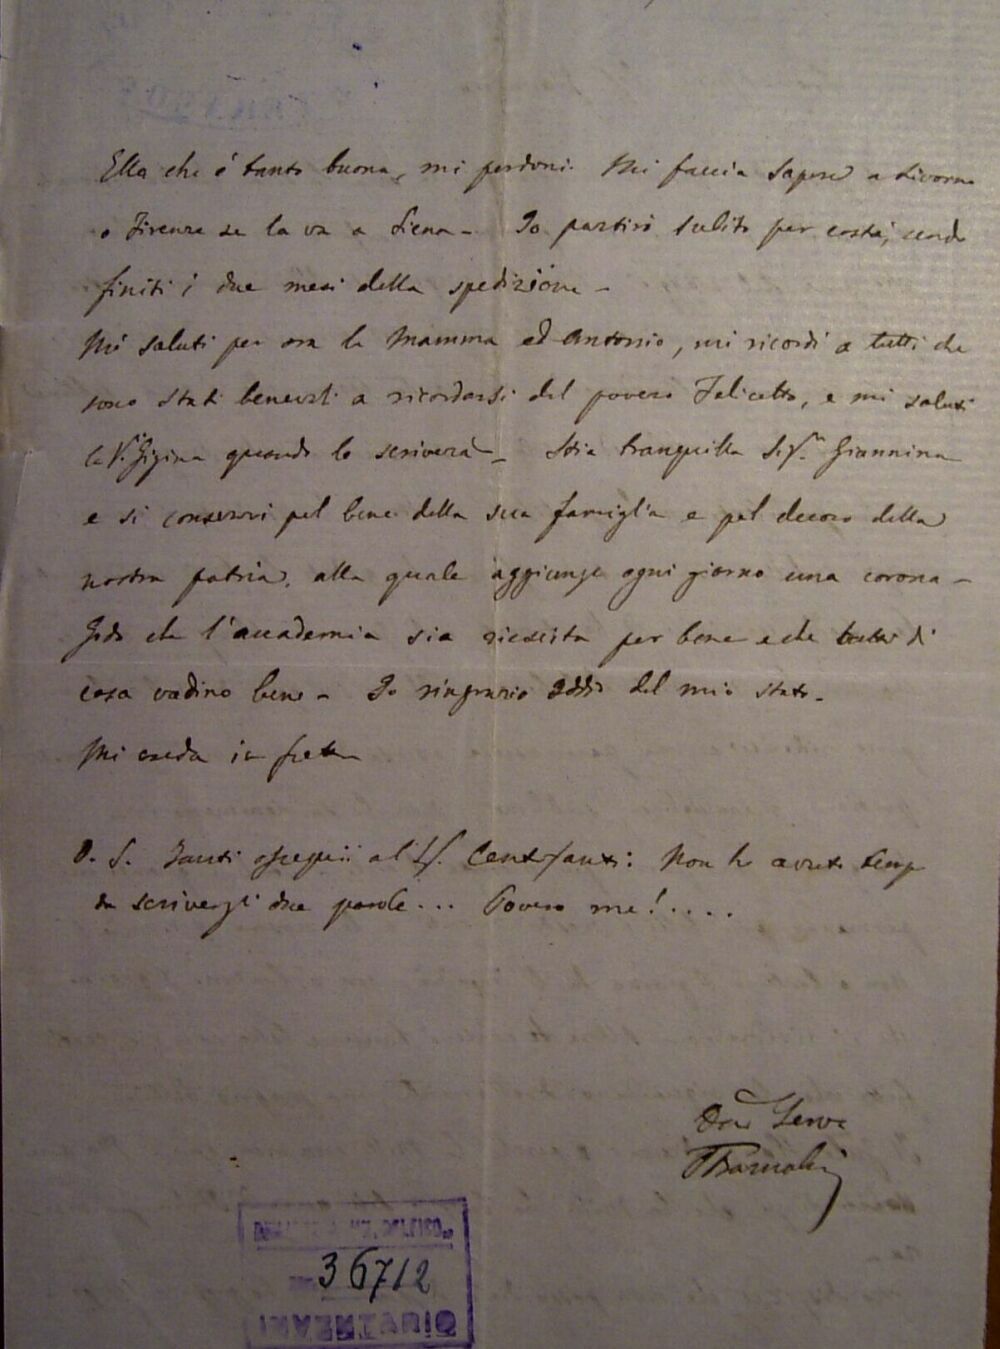 Ella che é tanto buona, mi perdoni. Mi faccia sapere a Livorno
o Firenze se la va a Siena - Io partirò subito per costà, 
finiti i due mesi della spedizione -
Mi saluti per ora la Mamma ed Antonio, mi ricordi a tutti che
sono stati benevoli a ricordarsi del povero Felicetto, e mi saluti
la Sigina quando le scriverà - Stia tranquilla Sigra Giannina
e si conservi pel bene della sua famiglia e pel decoro della
nostra patria, alla quale aggiunge ogni giorno una corona -
Godo che l'accademia sia riescita per bene e che tutti di
casa vadino bene - Io ringrazio Iddio del mio stato -
Mi creda in fretta
P. S. Tanti ossequii al Sig. Centofanti: Non ho avuto tempo
da scrivergli due parole... Povero me!....
Servo
36712